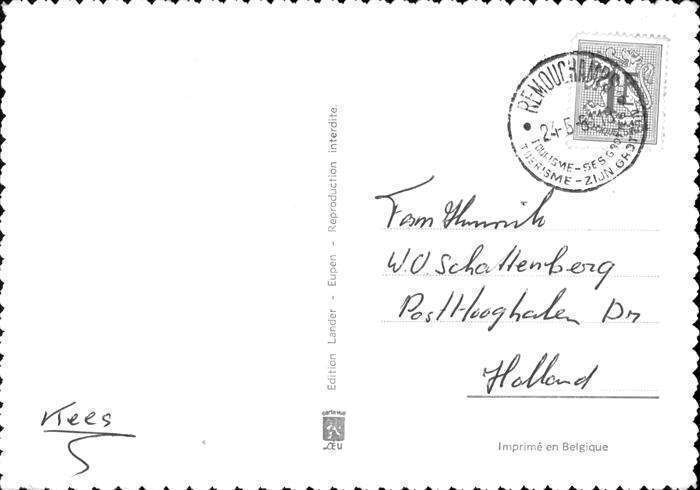 REMOUCHAMPS
1F
24-5-6
TOURISME - SES GROTTES
TOERISME - ZIJN GROTTEN
Edition Lander - Eupen - Reproduction interdite.
Fam
W.O. Schattenberg
Post Hooghalen Dr
Holland
Kees
Imprimé en Belgique